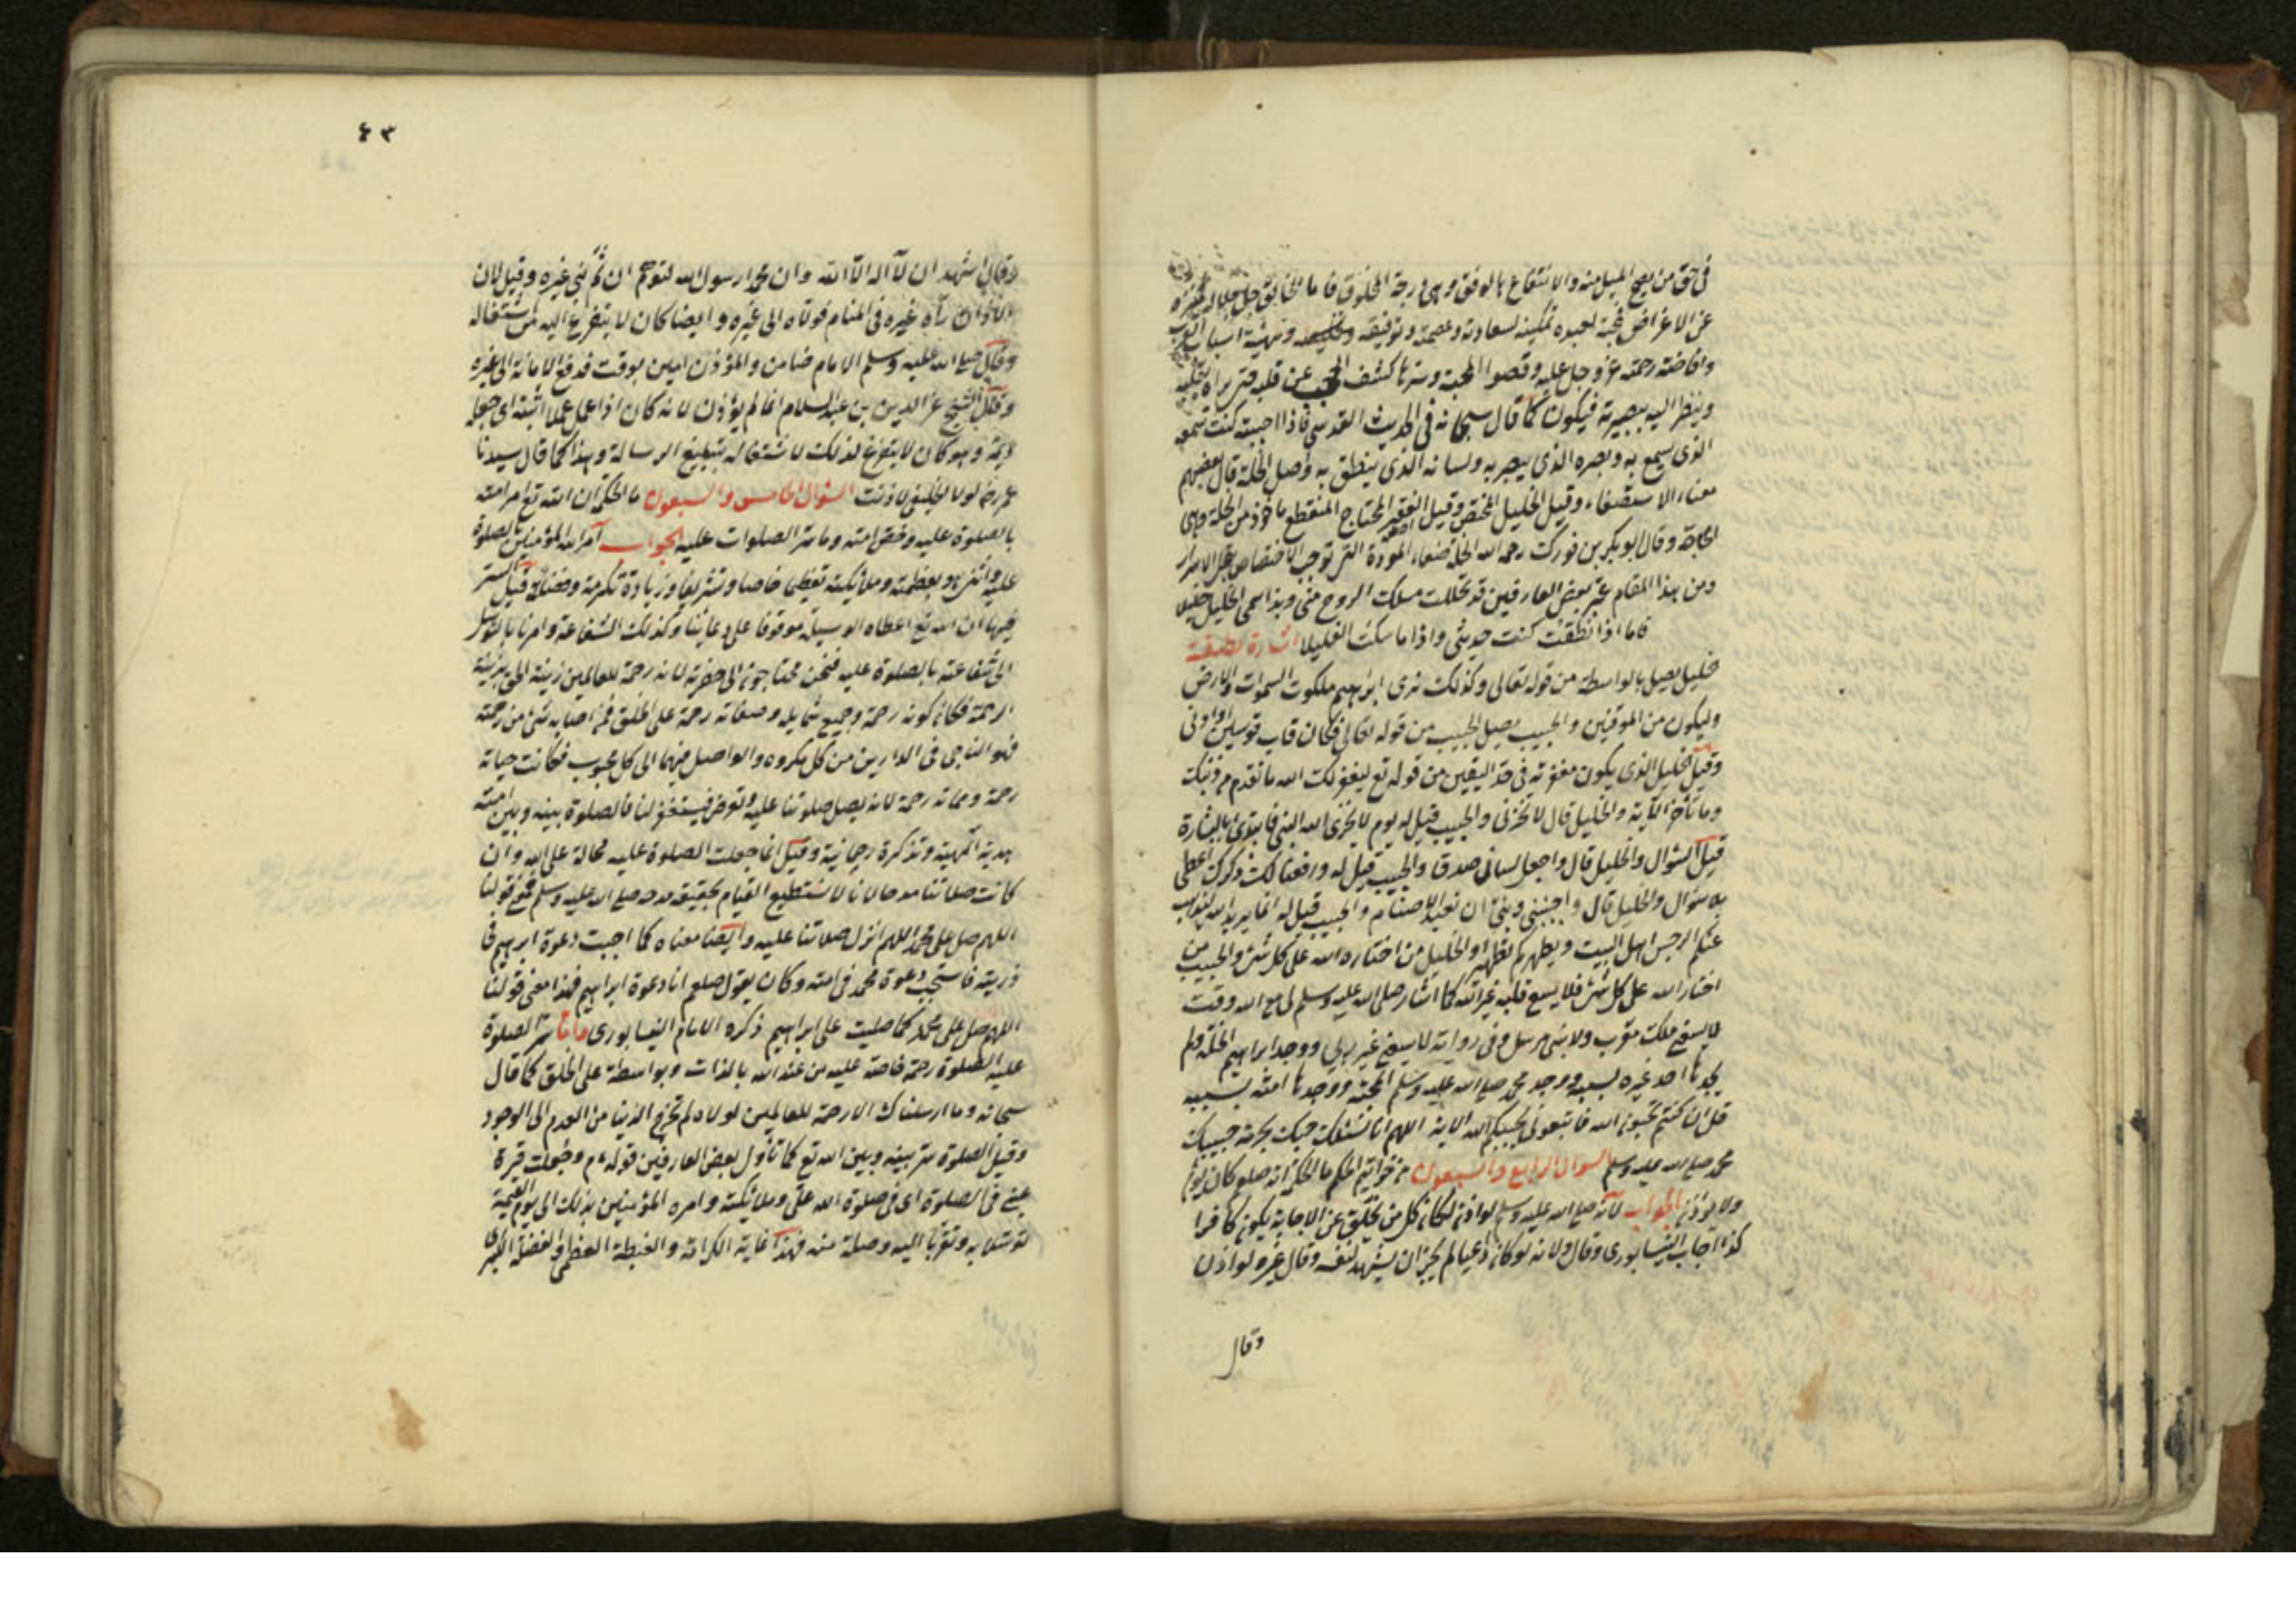 في حق من يصح الميل منه والانتفاع بالوفق وهي درجة المخلوق فاما الخالق جل جلاله منزه
عن الاغراض فمحبة لعبده تمكينه لسعادته وعصمته وتوفيقه وتهيئة اسباب القرب
وافاضة رحمته عز وجل عليه وقصوا المحبة وسرها كشف الحجب عن قلبه حتى يراه بقلبه
وينظر اليه ببصيرته فيكون كما قال سبحانه في الحديث القدسي فاذا احببته كنت سمعه
الذي يسمع به وبصره الذي يبصر به ولسانه الذي ينطق به واصل الخلة قال بعضهم
معناه الاستصفاء وقيل الخليل المختص وقيل الفقير المحتاج المنقطع مأخوذ من الخلة وهي
الحاجة وقال ابو بكر بن فورك رحمه الله الخلة صفاء المودة التي توجب الاختصاص بتخلل الاسرار
ومن هذا المقام عبر بعض العارفين قد تخللت مسلك الروح مني وبذا سمي الخليل خليلا
فاما اذا نطقت كنت حديثي واذا ما سكت الغليلا اشارة لطيفة
الخليل يصل بالواسطة من قوله تعالى وكذلك نري ابراهيم ملكوت السموات والارض
وليكون من الموقنين والحبيب يصل الحبيب من قوله تعالى فكان قاب قوسين او ادنى
وقيل الخليل الذي يكون مغفرته في حد اليقين من قوله تع ليغفر لك الله ما تقدم من ذنبك
وما تأخر الآية والخليل قال لا تخزني والحبيب قيل له يوم لا يخزي الله النبي فابتدئ بالبشارة
قبل السؤال والخليل قال واجعل لسان صدق والحبيب قيل له ورفعنا لك ذكرك اعطي
بلا سؤال والخليل قال واجنبني وبني ان نعبد الاصنام والحبيب قيل له انما يريد الله ليذهب
عنكم الرجس اهل البيت ويطهركم تطهيرا والخليل من اختاره الله على كل شئ والحبيب من
اختار الله على كل شئ فلا يسع قلبه غير الله كما اشار صلى الله عليه وسلم لي مع الله وقت
لا يسعني ملك مقرب ولا نبي مرسل وفي رواية لا يسعني غير ربي ووجد ابراهيم الخلة فلم
يجدها احد غيره بسببه ووجد محمد صلى الله عليه وسلم المحبة ووجدها امته بسببه
قل ان كنتم تحبون الله فاتبعوني يحببكم الله الاية اللهم انا نسئلك حبك بحرمة حبيبك
محمد صلى الله عليه وسلم السؤال الرابع والسبعون من خواتم الحكم ما الحكمة انه صلعم كان يؤم
ولا يؤذن الجواب لانه صلى الله عليه وسلم لو اذن لكان كل من تخلف عن الاجابة يكون كافرا
كذا اجاب النيسابوري وقال ولانه لو كان داعيا لم يجز ان يشهد لنفسه وقال غيره لو اذن
وقال
٤٣
وقال اشهد ان لآ اله الا الله وان محمدا رسول الله لتوهم ان ثم نبي غيره وقيل لان
الاذان رآه غيره في المنام فولاه الى غيره وايضا كان لا يتفرغ اليه من اشتغاله
وقال صلى الله عليه وسلم الامام ضامن والمؤذن امين بوقت فدفع الامانة الى غيره
وقال الشيخ عز الدين بن عبد السلام انما لم يؤذن لانه كان اذا عمل عملا اثبته اى جعله
ديمة وهو كان لا يتفرغ لذلك لاشتغاله بتبليغ الرسالة وهذا كما قال سيدنا
عمر رض لولا الخليفى لاذنت السؤال الخامس والسبعون ما الحكمة ان الله تع امر امته
بالصلوة عليه وخص امته وما سر الصلوات عليه الجواب آمر الله المؤمنين بالصلوة
عليه وملائكته تعظيما خاصا وتشريفا وزيادة تكرمة وقيل السر
فيها ان الله تع اعطاه الوسيلة موقوفا على دعائنا وكذلك الشفاعة وامرنا بالتوسل
الى شفاعته بالصلوة عليه فنحن محتاجون الى حضرته لانه رحمة للعالمين زينه الحق بزينة
الرحمة فكان كونه رحمة وجميع شمايله وصفاته رحمة على الخلق فمن اصابه شئ من رحمته
فهو الناجي في الدارين من كل مكروه والواصل فيهما الى كل محبوب فكانت حياته
رحمة ومماته رحمة لانه يصل صلوتنا عليه وتعرض فيستغفر لنا فالصلوة بينه وبين امته
هدية الهية وتذكرة رحمانية وقيل انما جعلت الصلوة عليه محالة على الله وان
كانت صلاتنا مدحا لانا لا نستطيع القيام بحقيقة مدحه صلى الله عليه وسلم فمعنى قولنا
اللهم صل على محمد اللهم انزل صلاتنا عليه وايضا معناه كما اجبت دعوة ابراهيم في
ذريته فاستجب دعوة محمد في امته وكان يقول صلعم انا دعوة ابراهيم فهذا معنى قولنا
اللهم صل على محمد كما صليت على ابراهيم ذكره الامام النيسابوري واما سر الصلوة
عليه الصلوة رحمة خاصة عليه من عند الله بالذات وبواسطة على الخلق كما قال
سبحانه وما ارسلناك الا رحمة للعالمين لولاه لم تخرج الدنيا من العدم الى الوجود
وقيل الصلوة سر بينه وبين الله تع كما تأول بعض العارفين قوله ءم وجعلت قرة
عيني في الصلوة اى في صلوة الله علي وملائكته وامره المؤمنين بذلك الى يوم القيمة
توسلا به وتقربا اليه وصلة منه فهذا غاية الكرامة والغبطة العظمى والفضيلة الكبرى